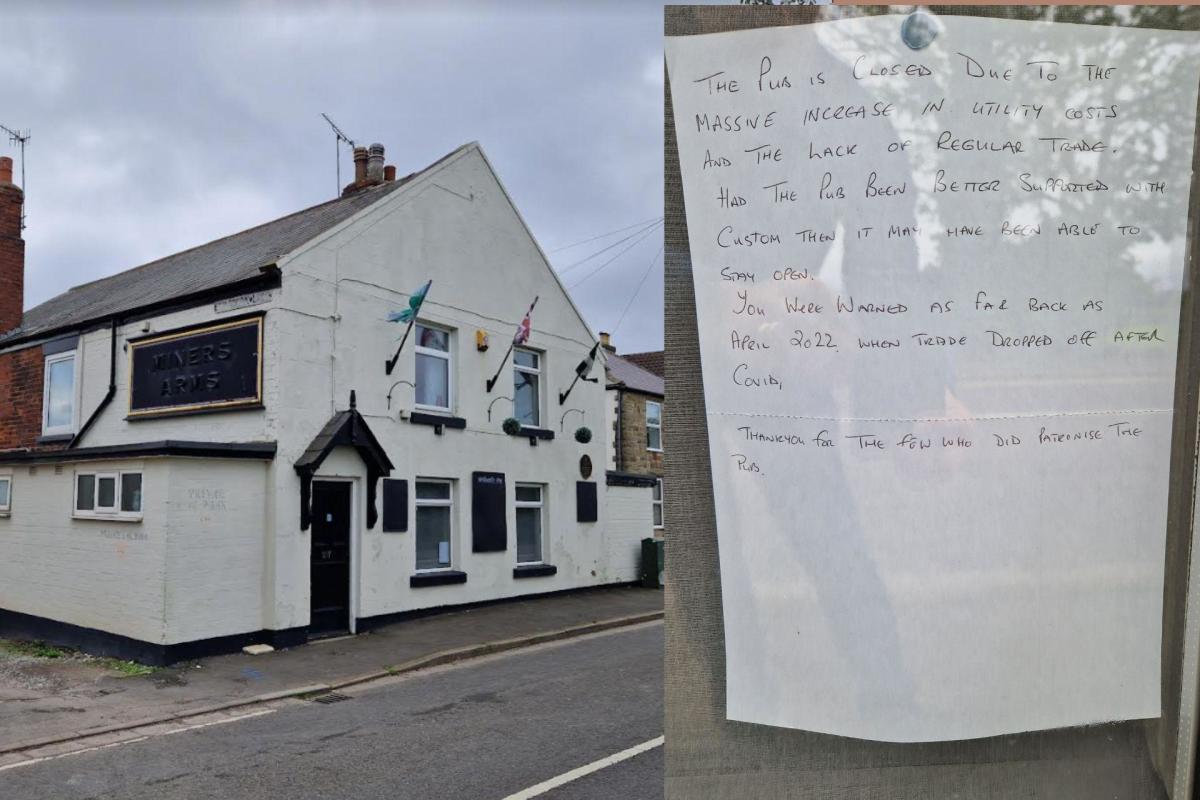 MINERS
ARMS
THE PUB IS CLOSED DUE TO THE
MASSIVE INCREASE IN UTILITY COSTS
AND THE LACK OF REGULAR TRADE.
HAD THE PUB BEEN BETTER SUPPORTED WITH
CUSTOM THEN IT MAY HAVE BEEN ABLE TO
STAY OPEN.
YOU WERE WARNED AS FAR BACK AS
APRIL 2022, WHEN TRADE DROPPED OFF AFTER
COVID,
THANKYOU FOR THE FEW WHO DID PATRONISE THE
PUB.